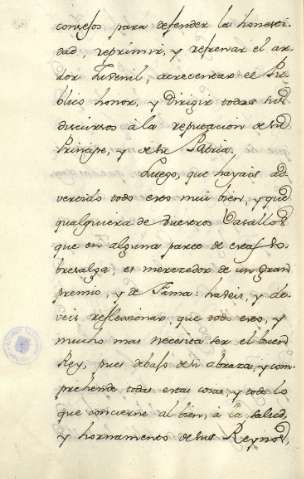 consejos para defender la honesti-
dad, reprimir, y refrenar el ar-
dor Jubenil, acrecentar el Pú-
blico honor, y dirigir todos sus
discursos à la reputacion de su
Principe, y de su Patria.
Luego, que hayais ad-
vertido todo esto mui bien, y que
qualquiera de vuestros Vasallos
que en alguna parte de estas So-
bresalga, es merecedor de un gran
premio, y de Fama: habeis, y de-
veis reflessionar, que todo esto, y
mucho mas necesita ser el buen
Rey, pues debajo de si abraza, y com-
prehende todas estas cosas, y todo lo
que concierne al bien, à la salud,
y hornamento de sus Reynos,